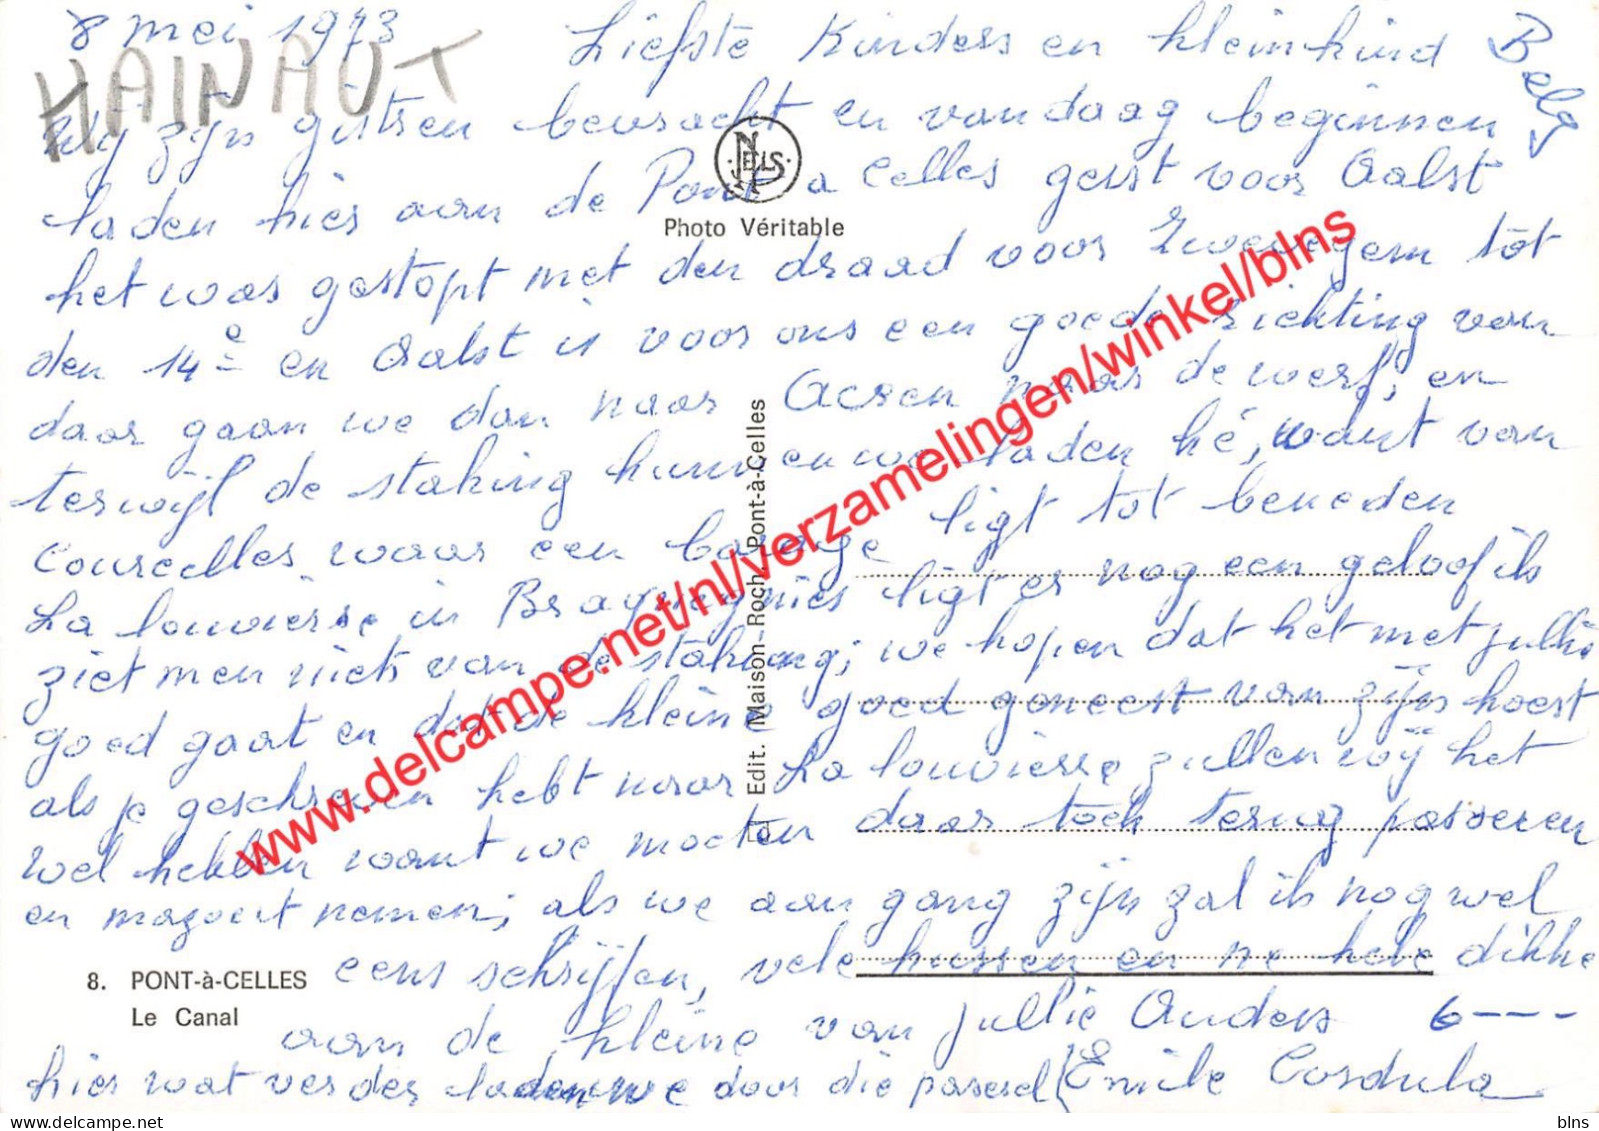 8 mei 1973
HAINAUT
Belg
Liefste Kinders en kleinkind
Wij zijn gistren bevracht en vandaag beginnen
laden hier aan de Pont a Celles gerst voor Aalst
het was gestopt met den draad voor Zwevegem tot
den 14e en Aalst is voor ons een goede richting van
daar gaan we dan naar Acren naar de werf, en
terwijl de staking kunnen we laden hé, want van
Courcelles waar een barage ligt tot beneden
La louvierre in Braquegnies ligt er nog een geloof ik
ziet men niets van de staking; we hopen dat het met jullie
goed gaat en dat de kleine goed geneest van zijn hoest
als je geschreven hebt naar La louvierre zullen wij het
wel hebben want we moeten daar toch terug passeren
en mazout nemen; als we aan gang zijn zal ik nog wel
eens schrijfen, vele kussen en ne hele dikke
aan de kleine van jullie Ouders 6----
hier wat verder laden we door die passerel (Emile Cordula
NELS
Photo Véritable
Edit. Maison Roch, Pont-à-Celles
8. PONT-à-CELLES
Le Canal
www.delcampe.net/nl/verzamelingen/winkel/blns
© delcampe.net
blns